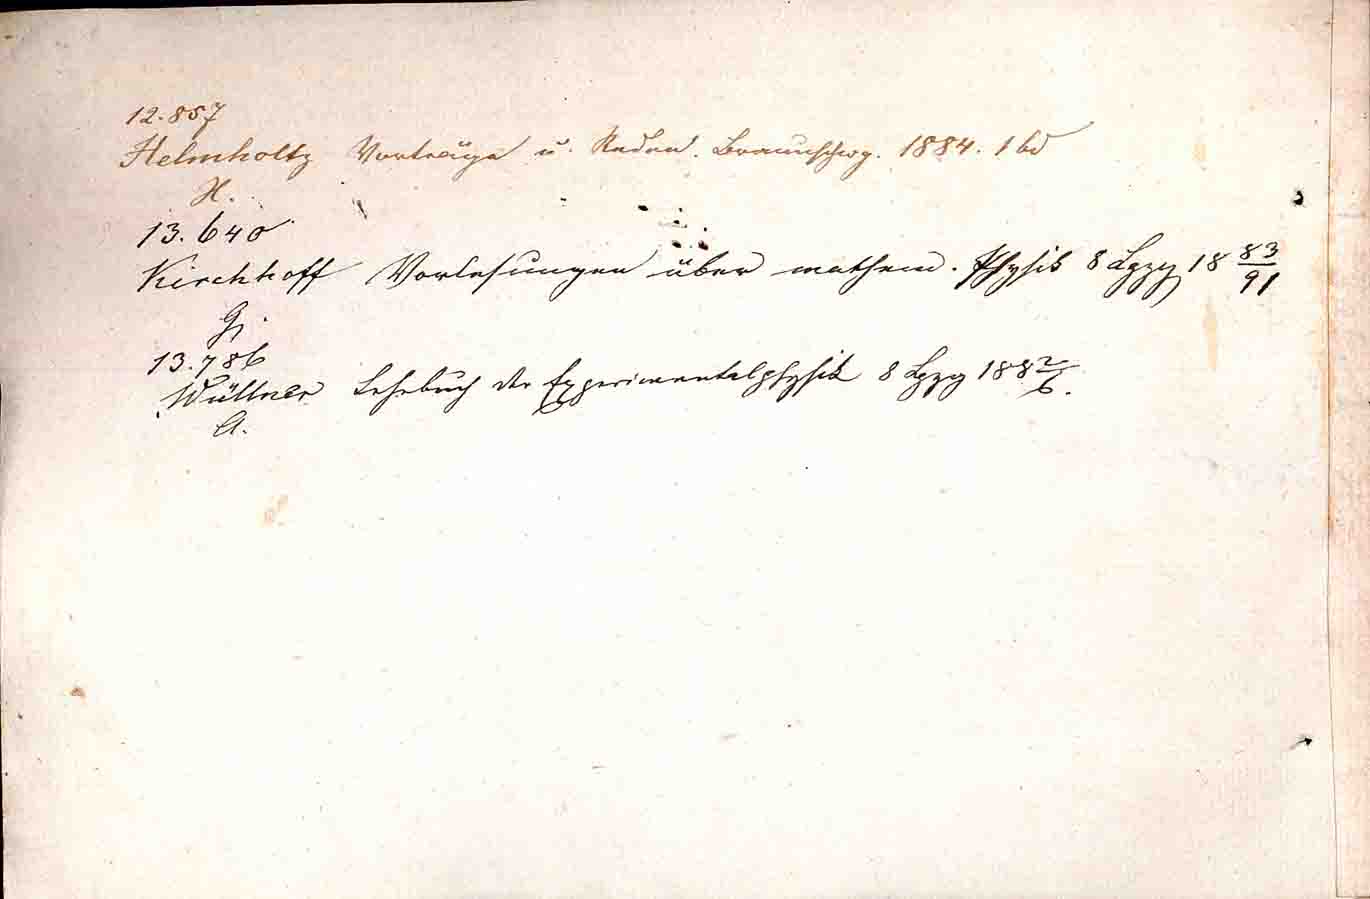 12.857
Helmholtz Vorträge u. Reden. Braunschwg. 1884. 1 bd
H.
13.640
Kirchhoff Vorlesungen über mathem. Physik 8 Lpzg 18 83/91
G.
13.786
Wüllner Lehrbuch der Experimentalphysik 8 Lpzg 188 2/6.
A.